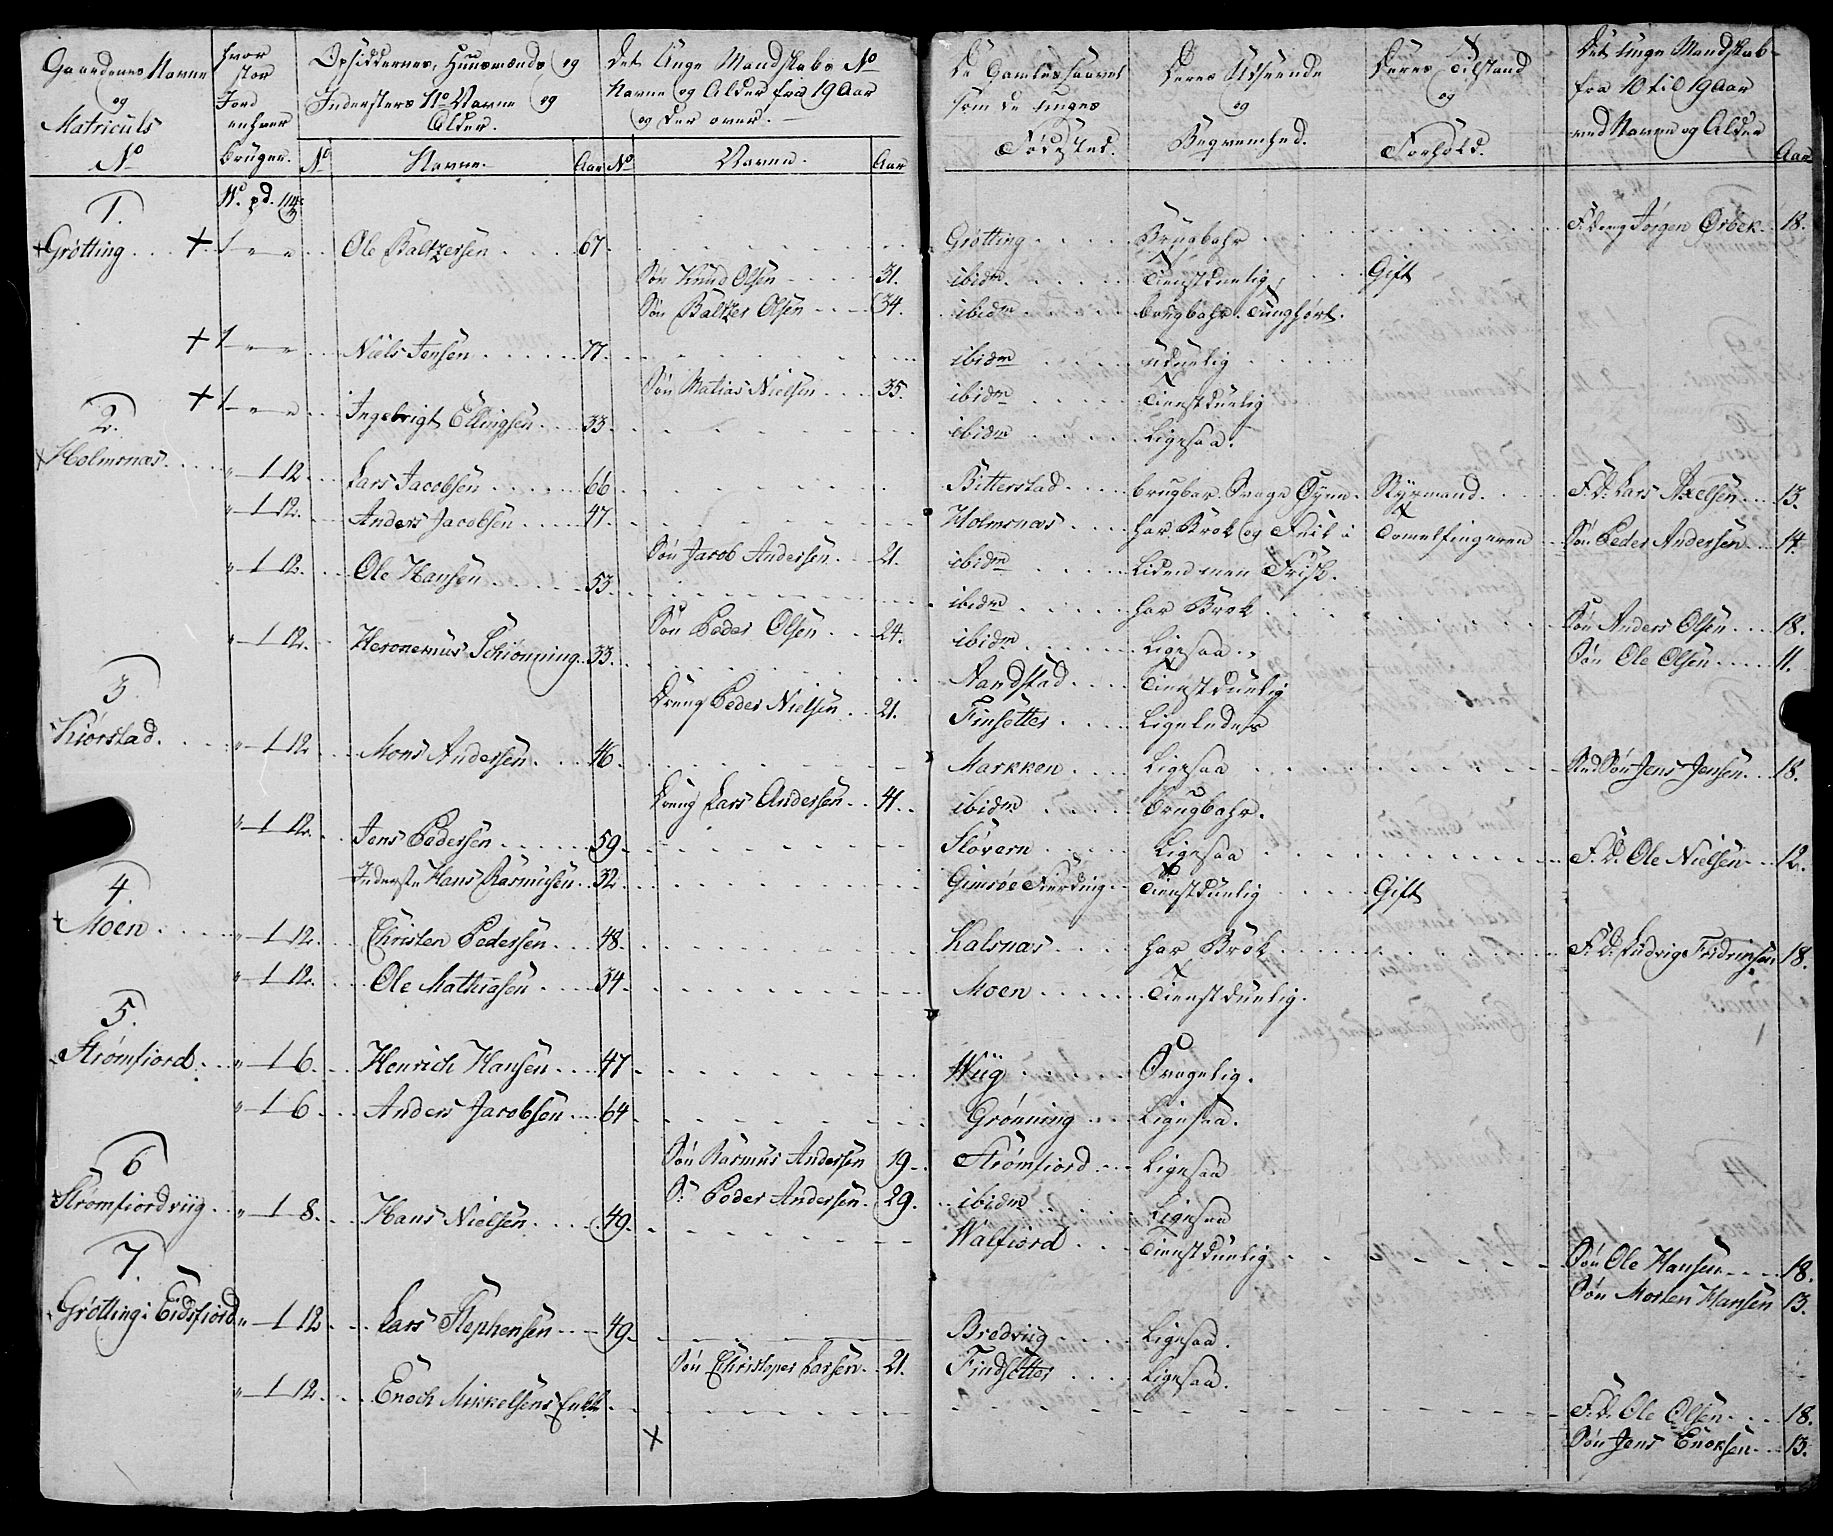 Gaardenes Navne
og
Matriculs
No
hvor
stor
Jord
enhver
bruger.
Opsiddernes, Huusmænds og
Indersters No Navne og
Alder.
No Navne. Aar
Det Unge Mandskabs No
Navne og Alder fra 19 Aar
og der over.
No Navne. Aar
De Gamles saavel
som de unges
Fødested.
Deres Udseende
og
Beqvemhed.
Deres Tilstand
og
Forhold.
Det Unge Mandskab
fra 10 til 19 Aar
ved Navne og Alder
Aar
W. pd. mk
1.
Grøtting 1 " " Ole Baltzersen 67. Grøtting Brugbahr F. dreng Jørgen Ørbek 18.
Søn Knud Olsen 31. ibidm Tienstduelig Gift
Søn Baltzer Olsen 34. ibidm brugbahr Tunghørt.
1 " " Niels Jensen 77. ibidm uduelig
Søn Matias Nielsen 35. ibidm Tienstduelig
1 " " Ingebrigt Ellingsen 33. ibidm Ligesaa.
2.
Holmsnæs " 1 12 Lars Jacobsen 66 Bitterstad brugbar Svage Øyne Styrmand F. D. Lars Axelsen 13.
" 1 12 Anders Jacobsen 47. Holmsnæs har Brok og Feil i Tomelfingeren Søn Peder Andersen 14.
Søn Jacob Andersen 21. ibidm Liden men Frisk.
" 1 12 Ole Hansen 53. ibidm har Brok Søn Anders Olsen 18.
Søn Peder Olsen 24. ibidm Ligesaa. Søn Ole Olsen 11.
" 1 12 Heronemus Schiønning 33. Sandstad Tienstduelig
Dreng Peder Nielsen 21. Finsetter Ligeledes
3.
Kiørstad " 1 12 Mons Andersen 46 Markken Ligesaa Jens Jensen 18.
Dreng Lars Andersen 41. ibidm Brugbahr.
" 1 12 Jens Pedersen 59. Støvern Ligesaa F. D. Ole Nielsen 12.
Inderste Hans Rasmusen 32. Gimsøe Fierding Tienstduelig Gift
4.
Moen " 1 12 Christen Pedersen 48. Kalsnæs har Brok F. D. Ludvig Fridrichsen 18.
" 1 12 Ole Mathiasen 34. Moen Tienstduelig.
5.
Strømfiord " 1 6. Henrich Hansen 47 Wiig Svagelig.
" 1 6 Anders Jacobsen 64 Grønning Ligesaa.
Søn Rasmus Andersen 19. Strømfiord Ligesaa
S: Peder Andersen 29. ibidm Ligesaa
6
Strømfiordviig " 1 8. Hans Nielsen 49. Walfiord Tienstduelig Søn Ole Hansen 18.
Søn Morten Hansen 13.
7
Grøtting i Eidsfiord " 1 12 Lars Stephensen 49. Bredviig Ligesaa.
Søn Christoper Larsen 21. Findsetter Ligesaa.
" 1 12 Enoch Mikkelsens Enke F. D. Ole Olsen 18.
Søn Jens Enoksen 13.